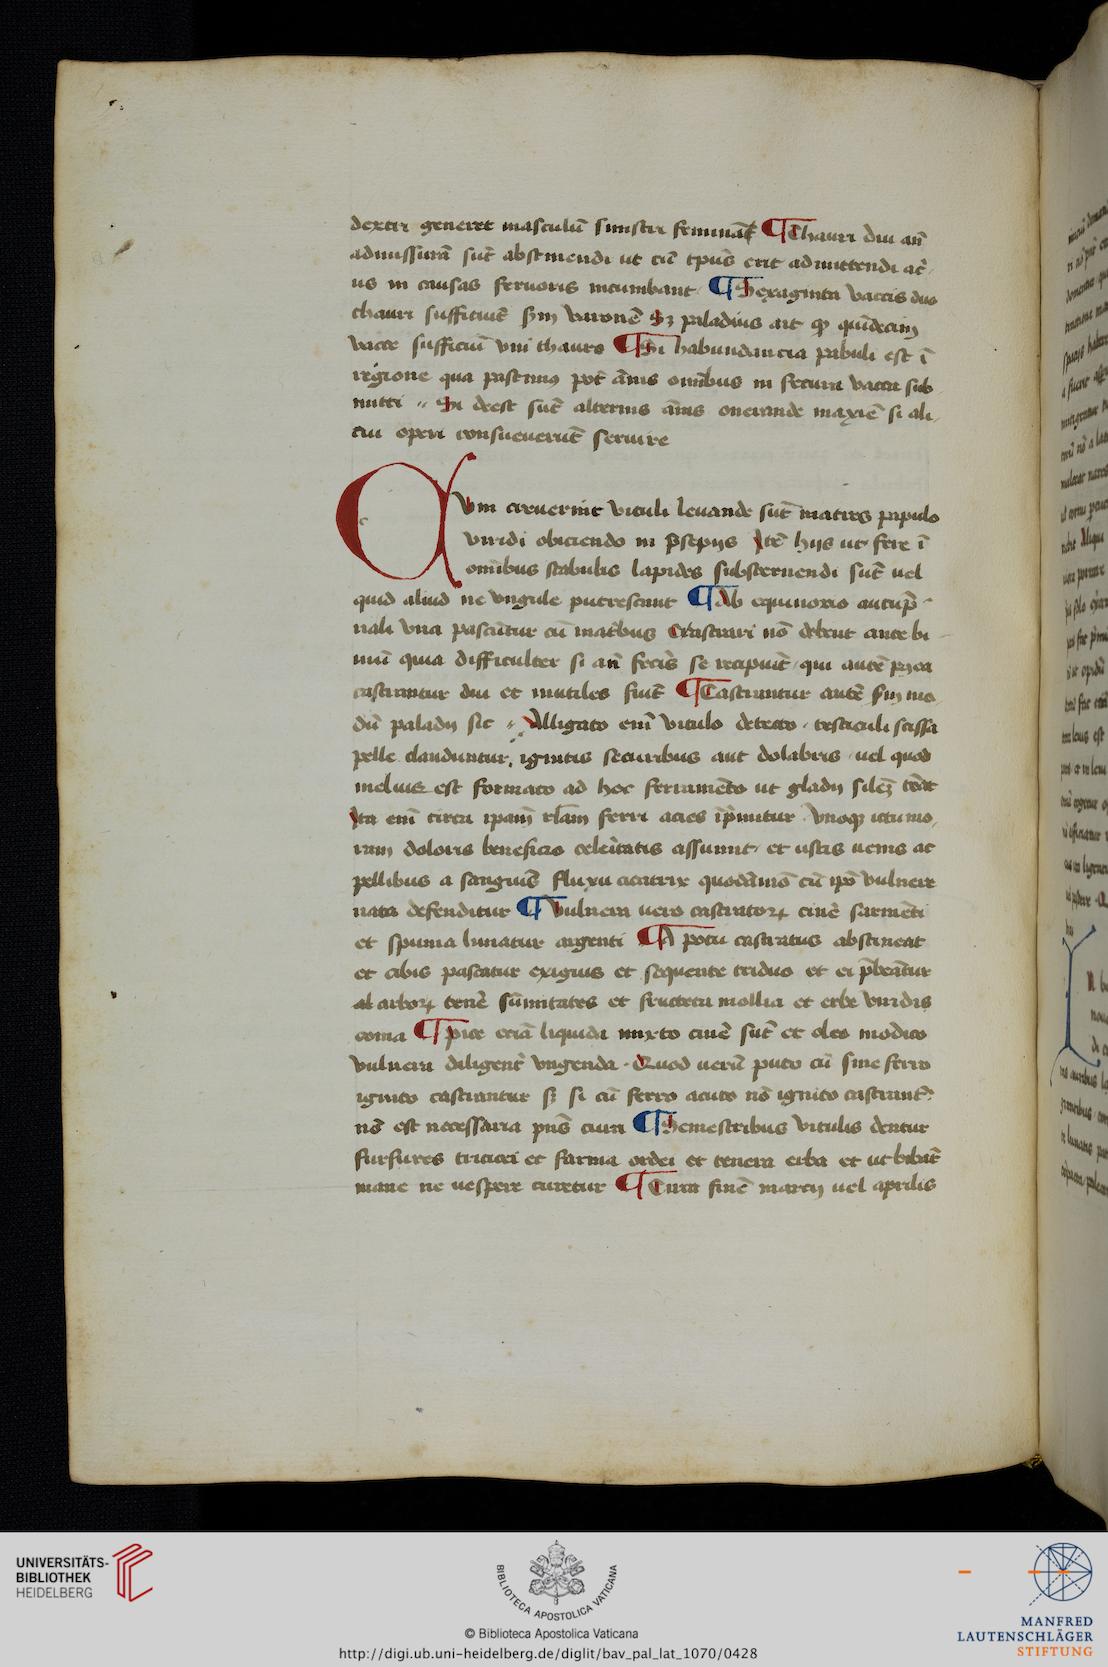 dextri generet masculū sinistri feminā ¶ Thauri diu añ
admissurā sūt abstinendi ut cū tp̄us erit admittendi acͥ
us in causas fervoris incumbant ¶ Sexaginta vaccis duo
thauri sufficiūt sm̄ varonē Sꝫ paladius ait ꝙ quīdecim
vacce sufficiūt vni thauro ¶ Si habundancia pabuli est ī
regione qua pastimꝰ pōt ānis omībus in fetura vacca sub
mitti .. Si deest sūt alternis ānis onerande maxīe si ali
cui operi consueverūt servire
Cvm creverint vituli levande sūt matres papulo
viridi obiciendo in p̄sepijs Itē hijs ut fere ī
omībus stabulis lapides substernendi sūt vel
quid aliud ne vngule putrescant ¶ Ab equinoxio autūp
nali vna pascūtur cū matͥbus Castrari nō debent ante bi
mū quia difficulter si añ fecͥs se recipiūt qui autē p9ea
castrantur diu et inutiles fiūt ¶ Castrantur autē sm̄ mo
dū paladij sic .. Alligato enī vitulo detecto testiculi scissa
pelle clauduntur ignitis securibus aut dolabris vel quod
melius est formato ad hoc ferramēto ut gladij silēꝫ teat
Ita enī circa ipam̄ rl̄am ferri acies īp̄mitur vnoqꝫ ictu mo
ram doloris beneficio celeͥtatis assumit et ustis uenis ac
pellibus a sanguīs fluxu cicatrix quodāmō cū ip̄o vulnere
nata defenditur ¶ Vulnera uero castratoꝝ cinē sarmēti
et spuma lunatur argenti ¶ A potu castratus abstineat
et cibis pascatur exiguis et sequente triduo et ei p̄beātur
al arboꝝ tenē sūmitates et frutecta mollia et erbe viridis
coma ¶ pice etiā liquida mixto cinē sūt et oleo modico
vulnera diligent͛ vngenda . Quod uerū puto cū sine ferro
ignito castrantur sꝫ si cū ferro acuto nō ignito castrant͛
nō est necessaria pn̄s cura ¶ Semestribus vitulis dentur
furfures triticei et farina ordei et tenera erba et ut bibāt
mane ne uespere curetur ¶ Circa finē marcij vel aprilis
UNIVERSITÄTS-
BIBLIOTHEK
HEIDELBERG
BIBLIOTECA APOSTOLICA VATICANA
© Biblioteca Apostolica Vaticana
http://digi.ub.uni-heidelberg.de/diglit/bav_pal_lat_1070/0428
MANFRED
LAUTENSCHLÄGER
STIFTUNG